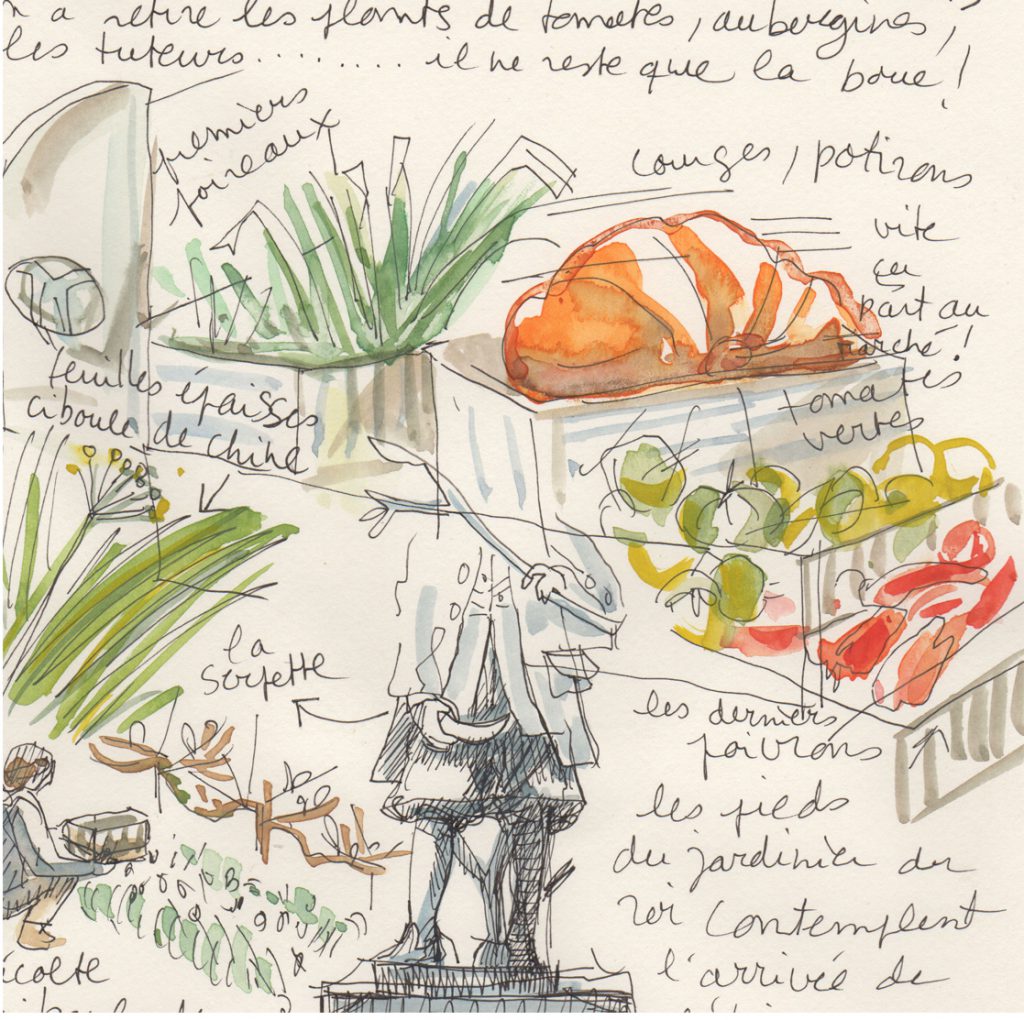 n a retiré les plants de tomates, aubergines,
les tuteurs......... il ne reste que la boue!
premiers
poireaux
courges, potirons
vite
ça
part au
marché!
tomates
vertes
feuilles épaisses
ciboule de chine
la
serpette
les derniers
poivrons
les pieds
du jardinier du
roi contemplent
l'arrivée de
écolte